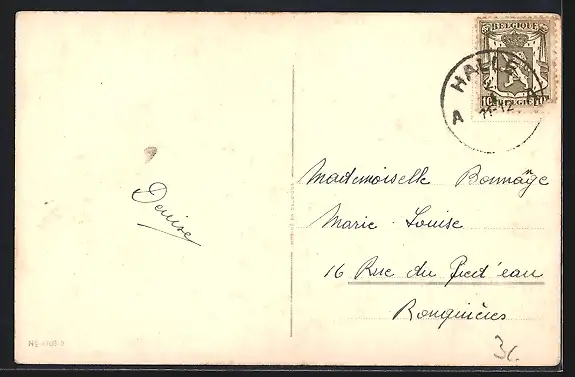 BELGIQUE
10c BELGIË 10c
HALLE
A A
11-12
Denise
Mademoiselle Bonnaÿe
Marie-Louise
16 Rue du Pied'eau
Ronquières
3c